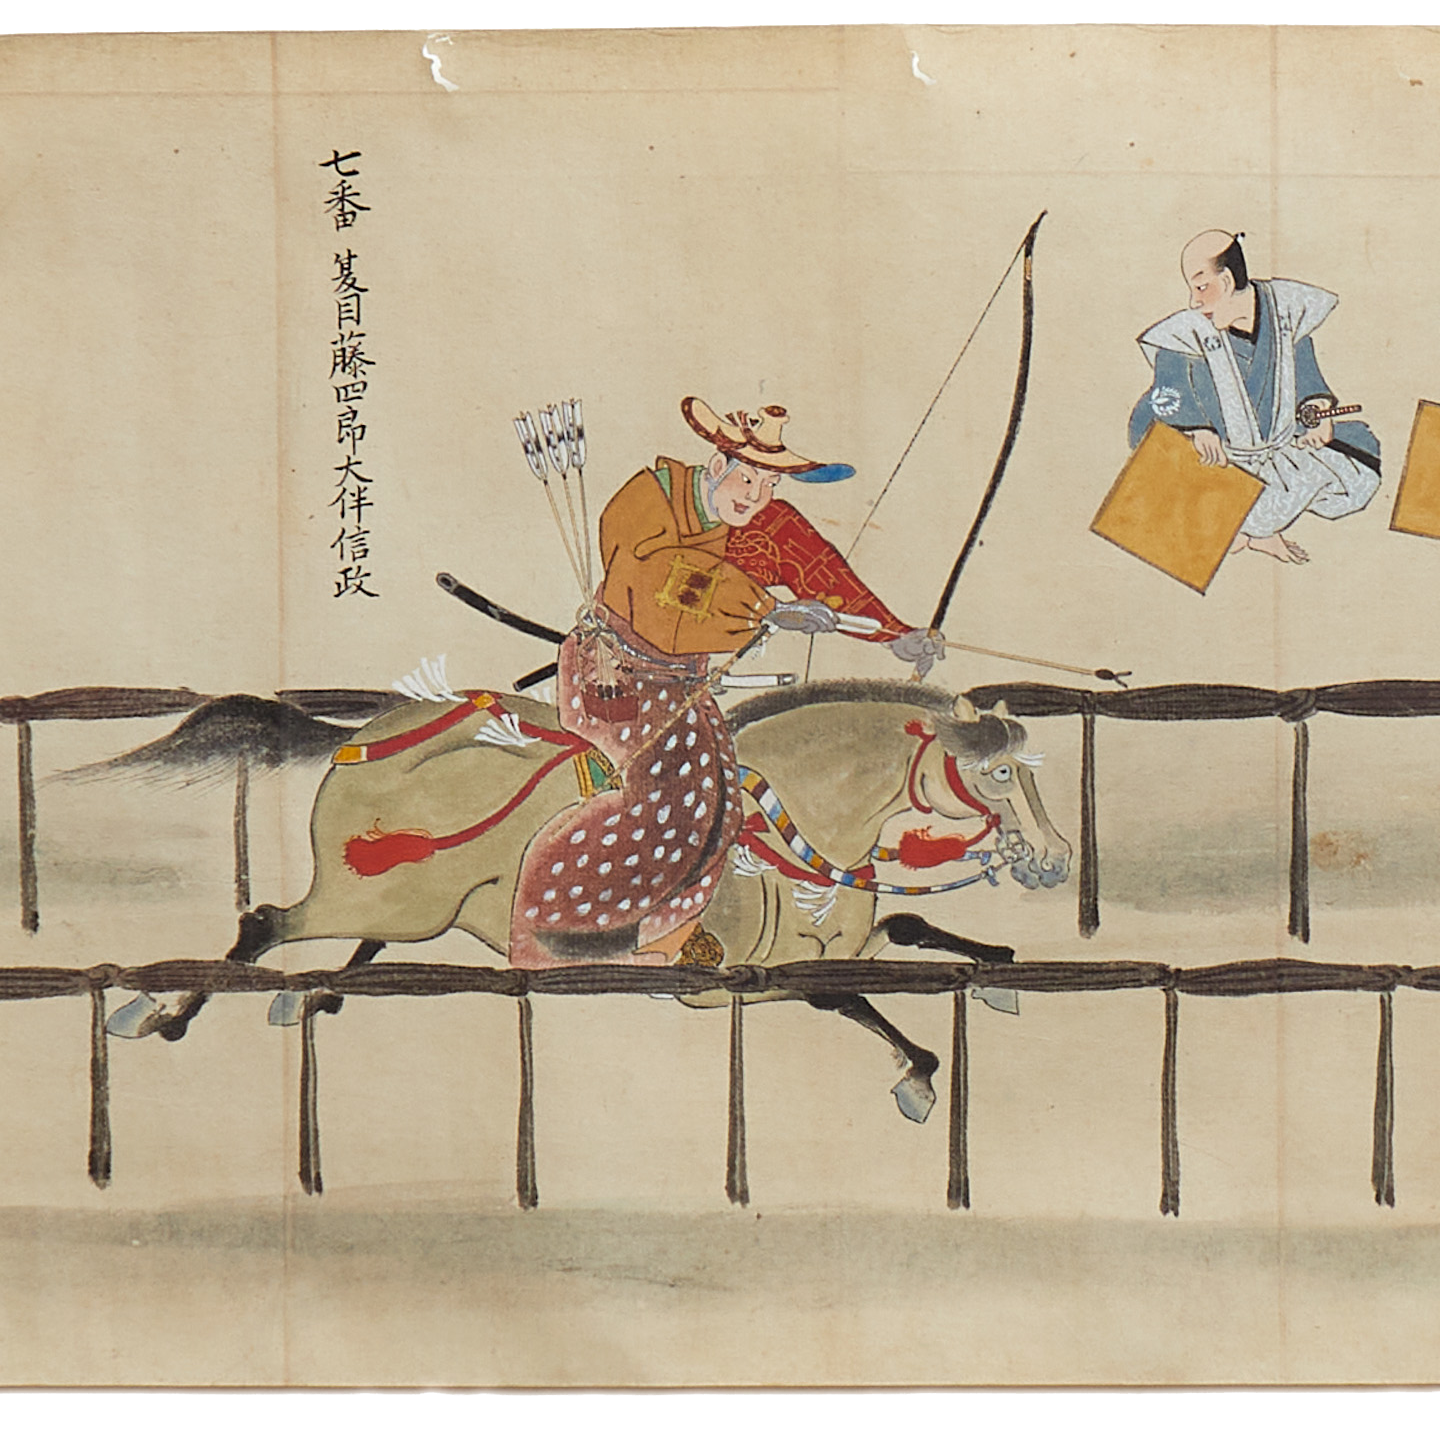 七番 夏目藤四郎大伴信政